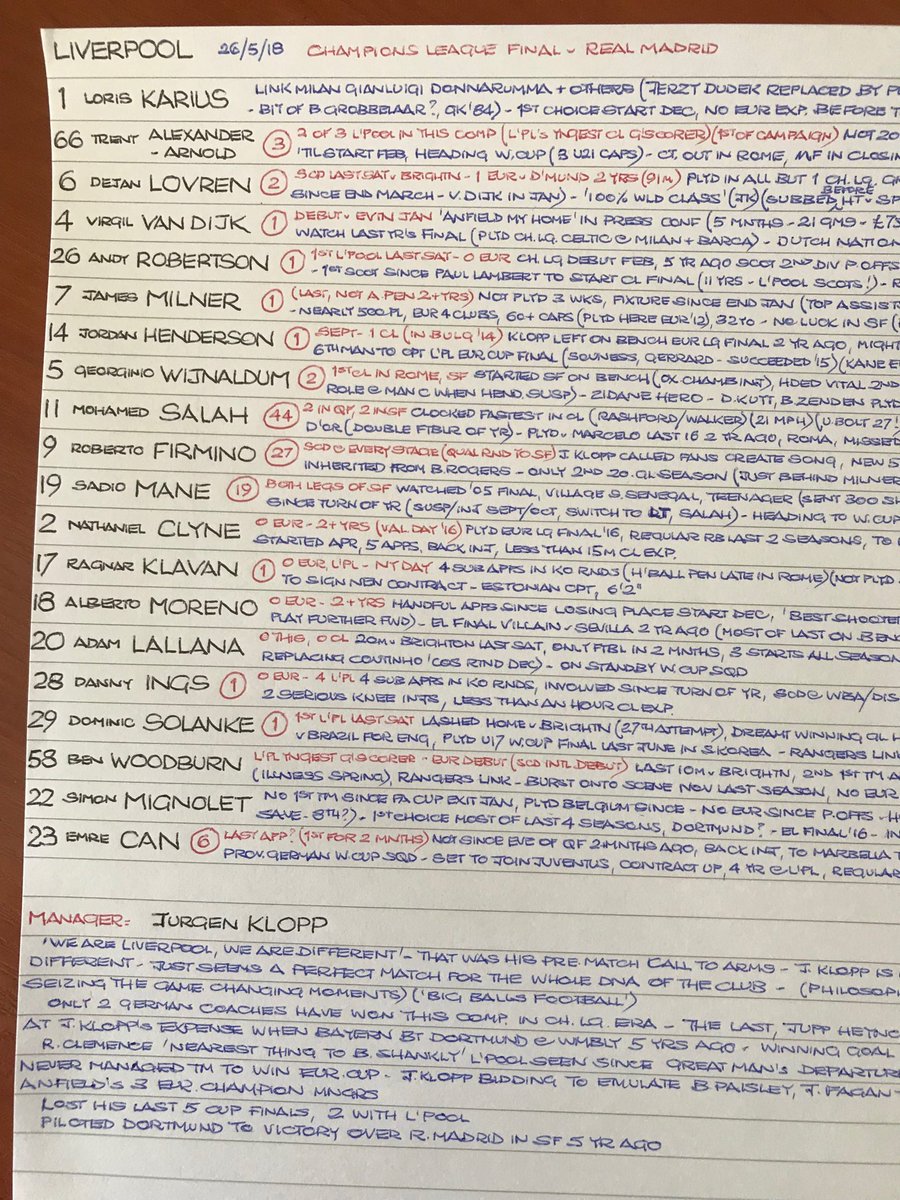 LIVERPOOL 26/5/18 CHAMPIONS LEAGUE FINAL v REAL MADRID
1 LORIS KARIUS LINK MILAN GIANLUIGI DONNARUMMA + OTHERS (JERZY DUDEK REPLACED BY
- BIT OF B GROBBELAAR?, GK '84) - 1ST CHOICE START DEC, NO EUR EXP. BEFORE
66 TRENT ALEXANDER - ARNOLD (3) 2 OF 3 L'POOL IN THIS COMP (L'PL'S YNGEST CL G'SCORER) (1ST OF CAMPAIGN) NOT 20
'TIL START FEB, HEADING W.CUP (3 U21 CAPS) - CT. OUT IN ROME, MF IN CLOSIN
6 DEJAN LOVREN (2) SCD LAST SAT v BRIGHTN - 1 EUR v D'MUND 2 YRS (91M) PLYD IN ALL BUT 1 CH. LG. G
SINCE END MARCH - V. DIJK IN JAN) - '100% WLD CLASS' (JK) (SUBBED BEFORE HT v SP
4 VIRGIL VAN DIJK (1) DEBUT v EV IN JAN 'ANFIELD MY HOME' IN PRESS CONF (5 MNTHS - 21 GMS - £75
WATCH LAST YR'S FINAL (PLYD CH. LG. CELTIC @ MILAN + BARCA) - DUTCH NATION
26 ANDY ROBERTSON (1) 1ST L'POOL LAST SAT - 0 EUR CH. LG DEBUT FEB, 5 YR AGO SCOT 2ND DIV P. OFFS
- 1ST SCOT SINCE PAUL LAMBERT TO START CL FINAL (11 YRS - L'POOL SCOTS!) - R
7 JAMES MILNER (1) (LAST, NOT A PEN 2+YRS) NOT PLYD 3 WKS, FIXTURE SINCE END JAN (TOP ASSIST
- NEARLY 500 PL, EUR 4 CLUBS, 60+ CAPS (PLYD HERE EUR '12), 32YO - NO LUCK IN SF (
14 JORDAN HENDERSON (1) SEPT - 1 CL (IN BULG '14) KLOPP LEFT ON BENCH EUR LG FINAL 2 YR AGO, MIGHT
6TH MAN TO CPT L'PL EUR CUP FINAL (SOUNESS, GERRARD - SUCCEEDED '15) (KANE E
5 GEORGINIO WIJNALDUM (2) 1ST CL IN ROME, SF STARTED SF ON BENCH (OX CHAMB INJ), HDED VITAL 2ND
ROLE @ MAN C WHEN HEND. SUSP) - ZIDANE HERO - D. KUYT, B. ZENDEN PLYD
11 MOHAMED SALAH (44) 2 IN QF, 2 IN SF CLOCKED FASTEST IN CL (RASHFORD/WALKER) (21 MPH) (U BOLT 27!
D'OR (DOUBLE FTBLR OF YR) - PLYD v MARCELO LAST 16 2 YR AGO, ROMA, MISSED
9 ROBERTO FIRMINO (27) SCD @ EVERY STAGE (QUAL RND TO SF) J KLOPP CALLED FANS CREATE SONG, NEW 5
INHERITED FROM B. ROGERS - ONLY 2ND 20. GL SEASON (JUST BEHIND MILNER
19 SADIO MANE (19) BOTH LEGS OF SF WATCHED '05 FINAL, VILLAGE S. SENEGAL, TEENAGER (SENT 300 SH
SINCE TURN OF YR (SUSP/INJ SEPT/OCT, SWITCH TO LT, SALAH) - HEADING TO W. CUP
2 NATHANIEL CLYNE 0 EUR - 2+ YRS (VAL DAY '16) PLYD EUR LG FINAL '16, REGULAR RB LAST 2 SEASONS, TO
STARTED APR, 5 APPS, BACK INJ, LESS THAN 15M CL EXP.
17 RAGNAR KLAVAN (1) 0 EUR, L'PL - NY DAY 4 SUB APPS IN KO RNDS (H'BALL PEN LATE IN ROME) (NOT PLYD
TO SIGN NEW CONTRACT - ESTONIAN CPT, 6'2"
18 ALBERTO MORENO 0 EUR - 2+ YRS HANDFUL APPS SINCE LOSING PLACE START DEC, 'BEST SHOOTE
PLAY FURTHER FWD) - EL FINAL VILLAIN v SEVILLA 2 YR AGO (MOST OF LAST ON BENC
20 ADAM LALLANA 0 THIS, 0 CL 20M v BRIGHTON LAST SAT, ONLY FTBL IN 2 MNTHS, 3 STARTS ALL SEASON
REPLACING COUTINHO 'COS RTND DEC) - ON STANDBY W CUP SQD
28 DANNY INGS (1) 0 EUR - 4 L'PL 4 SUB APPS IN KO RNDS, INVOLVED SINCE TURN OF YR, SCD @ WBA/DIS
2 SERIOUS KNEE INJS, LESS THAN AN HOUR CL EXP.
29 DOMINIC SOLANKE (1) 1ST L'PL LAST SAT LASHED HOME v BRIGHTN (27TH ATTEMPT), DREAMT WINNING GL
v BRAZIL FOR ENG, PLYD U17 W.CUP FINAL LAST JUNE IN S. KOREA - RANGERS LINK
58 BEN WOODBURN L'PL YNGEST G'SCORER - EUR DEBUT (SCD INTL DEBUT) LAST 10M v BRIGHTN, 2ND 1ST TM A
(ILLNESS SPRING), RANGERS LINK - BURST ONTO SCENE NOV LAST SEASON, NO EUR
22 SIMON MIGNOLET NO 1ST TM SINCE FA CUP EXIT JAN, PLYD BELGIUM SINCE - NO EUR SINCE P. OFFS - H
SAVE - 8TH?) - 1ST CHOICE MOST OF LAST 4 SEASONS, DORTMUND? - EL FINAL '16 - IN
23 EMRE CAN (6) LAST APP? (1ST FOR 2 MNTHS) NOT SINCE EVE OF QF 2 MNTHS AGO, BACK INJ, TO MARBELLA T
PROV. GERMAN W.CUP SQD - SET TO JOIN JUVENTUS, CONTRACT UP, 4 YR @ L'PL, REGULAR
MANAGER: JURGEN KLOPP
'WE ARE LIVERPOOL, WE ARE DIFFERENT' - THAT WAS HIS PRE. MATCH CALL TO ARMS - J. KLOPP IS
DIFFERENT - JUST SEEMS A PERFECT MATCH FOR THE WHOLE DNA OF THE CLUB - (PHILOSOP
SEIZING THE GAME CHANGING MOMENTS) ('BIG BALLS FOOTBALL')
ONLY 2 GERMAN COACHES HAVE WON THIS COMP. IN CH. LG. ERA - THE LAST, JUPP HEYNC
AT J. KLOPP'S EXPENSE WHEN BAYERN BT DORTMUND @ WMBLY 5 YRS AGO - WINNING GOAL
R. CLEMENCE 'NEAREST THING TO B. SHANKLY' L'POOL SEEN SINCE GREAT MAN'S DEPARTURE
NEVER MANAGED TM TO WIN EUR. CUP - J. KLOPP BIDDING TO EMULATE B PAISLEY, J. FAGAN
ANFIELD'S 3 EUR. CHAMPION MNGRS
LOST HIS LAST 5 CUP FINALS, 2 WITH L'POOL
PILOTED DORTMUND TO VICTORY OVER R. MADRID IN SF 5 YR AGO